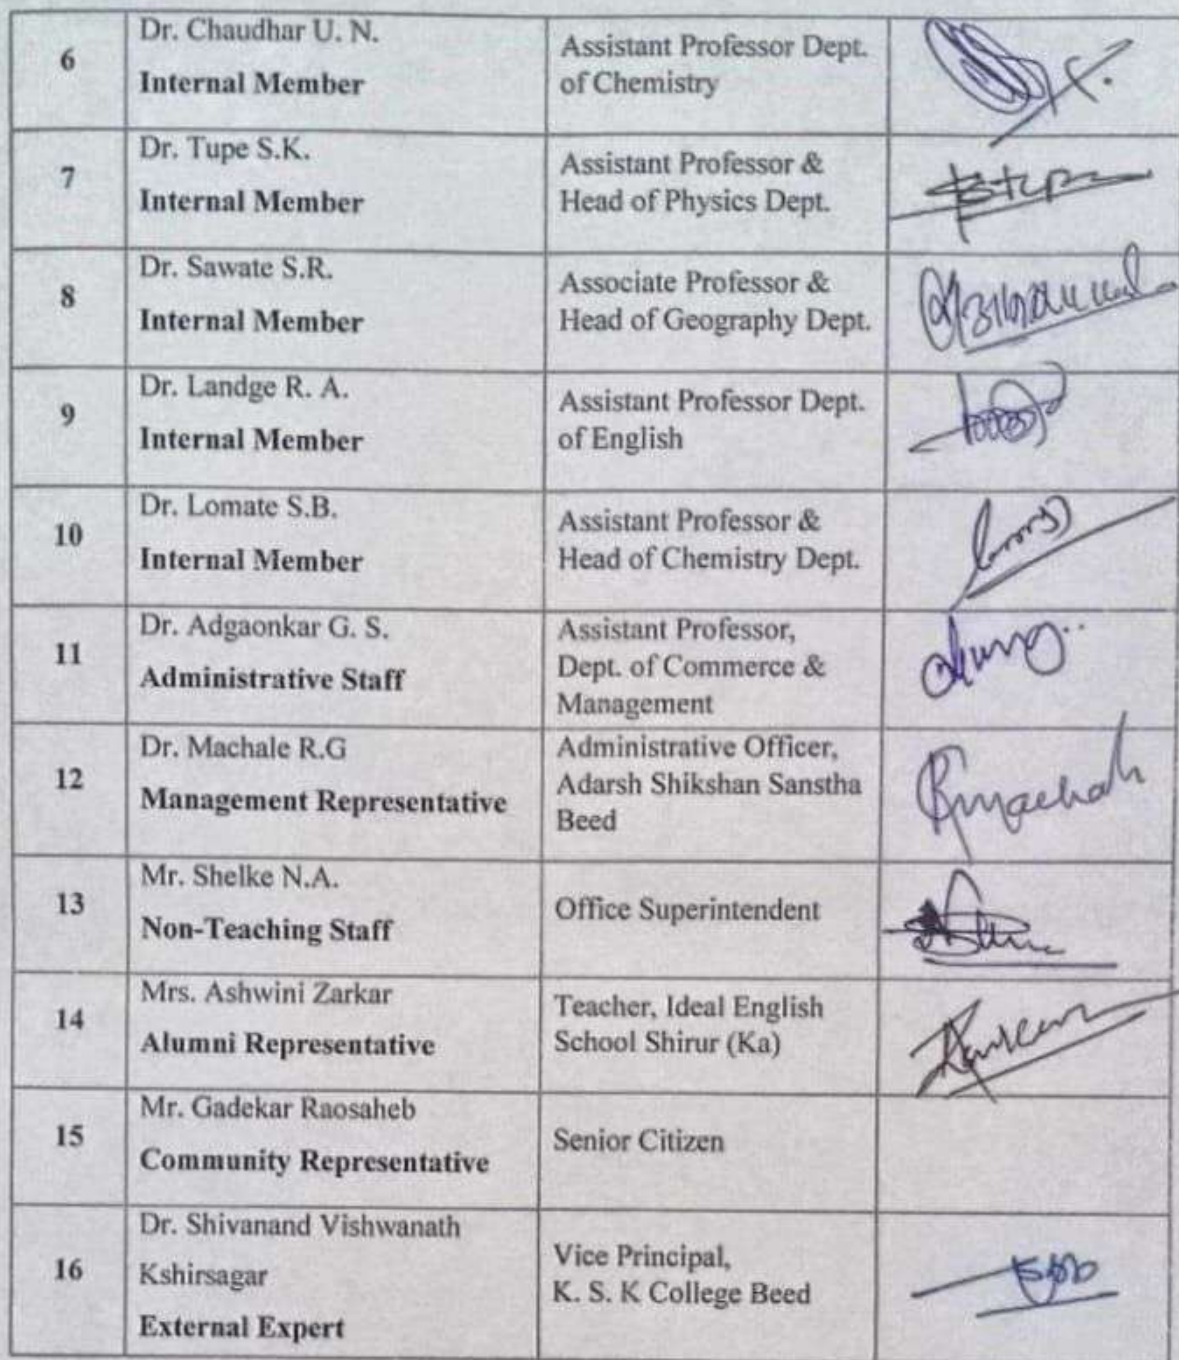 6
Dr. Chaudhar U. N.
Internal Member
Assistant Professor Dept.
of Chemistry
7
Dr. Tupe S.K.
Internal Member
Assistant Professor &
Head of Physics Dept.
8
Dr. Sawate S.R.
Internal Member
Associate Professor &
Head of Geography Dept.
9
Dr. Landge R. A.
Internal Member
Assistant Professor Dept.
of English
10
Dr. Lomate S.B.
Internal Member
Assistant Professor &
Head of Chemistry Dept.
11
Dr. Adgaonkar G. S.
Administrative Staff
Assistant Professor,
Dept. of Commerce &
Management
12
Dr. Machale R.G
Management Representative
Administrative Officer,
Adarsh Shikshan Sanstha
Beed
13
Mr. Shelke N.A.
Non-Teaching Staff
Office Superintendent
14
Mrs. Ashwini Zarkar
Alumni Representative
Teacher, Ideal English
School Shirur (Ka)
15
Mr. Gadekar Raosaheb
Community Representative
Senior Citizen
16
Dr. Shivanand Vishwanath
Kshirsagar
External Expert
Vice Principal,
K. S. K College Beed